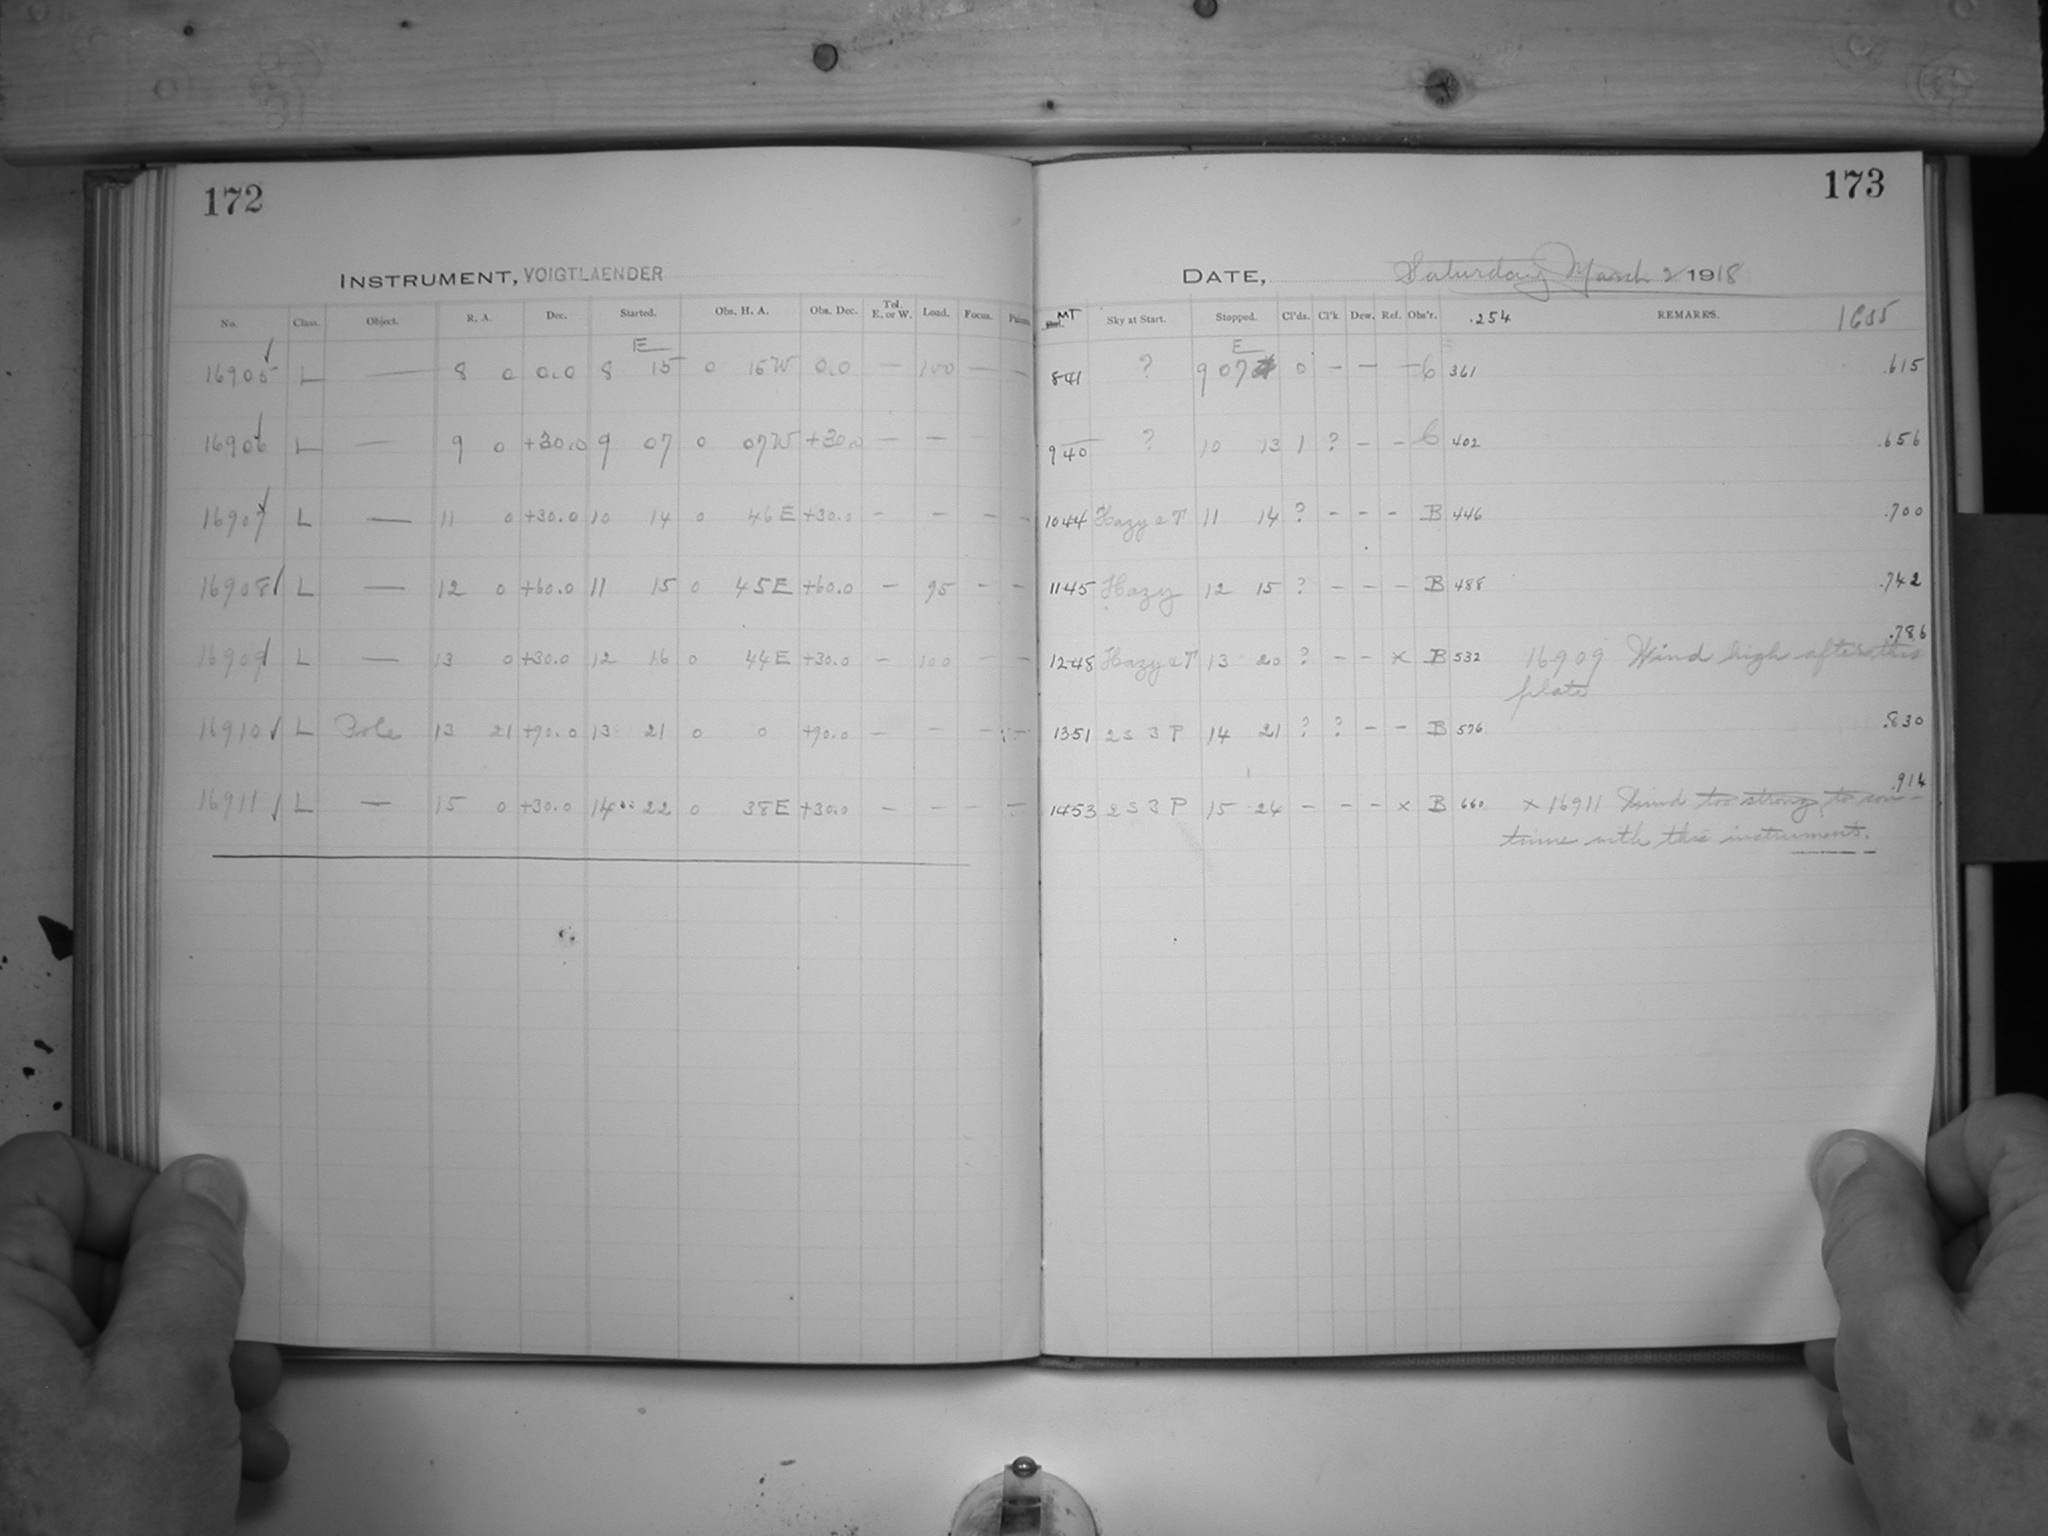 172
173
INSTRUMENT, VOIGTLAENDER
DATE, Saturday March 2 1918
No. Class. Object. R. A. Dec. Started. Obs. H. A. Obs. Dec. Tel. E. or W. Load. Focus. MT Sky at Start. Stopped. Cl'ds. Cl'k. Dew. Ref. Obs'r. .254 REMARKS. 1655
E E
16905 L — 8 0 0.0 8 15 0 15W 0.0 — 100 — — 841 ? 9 07 0 — — — 6 361 .615
16906 L — 9 0 +30.0 9 07 0 07W +30.0 — — 940 ? 10 13 1 ? — — 6 402 .656
16907 L — 11 0 +30.0 10 14 0 46E +30.0 — — — — 1044 Hazy 2 T 11 14 ? — — — B 446 .700
16908 L — 12 0 +60.0 11 15 0 45E +60.0 — 95 — — 1145 Hazy 12 15 ? — — — B 488 .742
16909 L — 13 0 +30.0 12 16 0 44E +30.0 — 100 — — 1248 Hazy 2 T 13 20 ? — — × B 532 16909 Wind high after this .786
plate
16910 L Pole 13 21 +90.0 13 21 0 0 +90.0 — — — — 1351 2 S 3 P 14 21 ? ? — — B 576 .830
16911 L — 15 0 +30.0 14 22 0 38E +30.0 — — — — 1453 2 S 3 P 15 24 — — — × B 660 × 16911 Wind too strong to con- .914
tinue with this instrument.